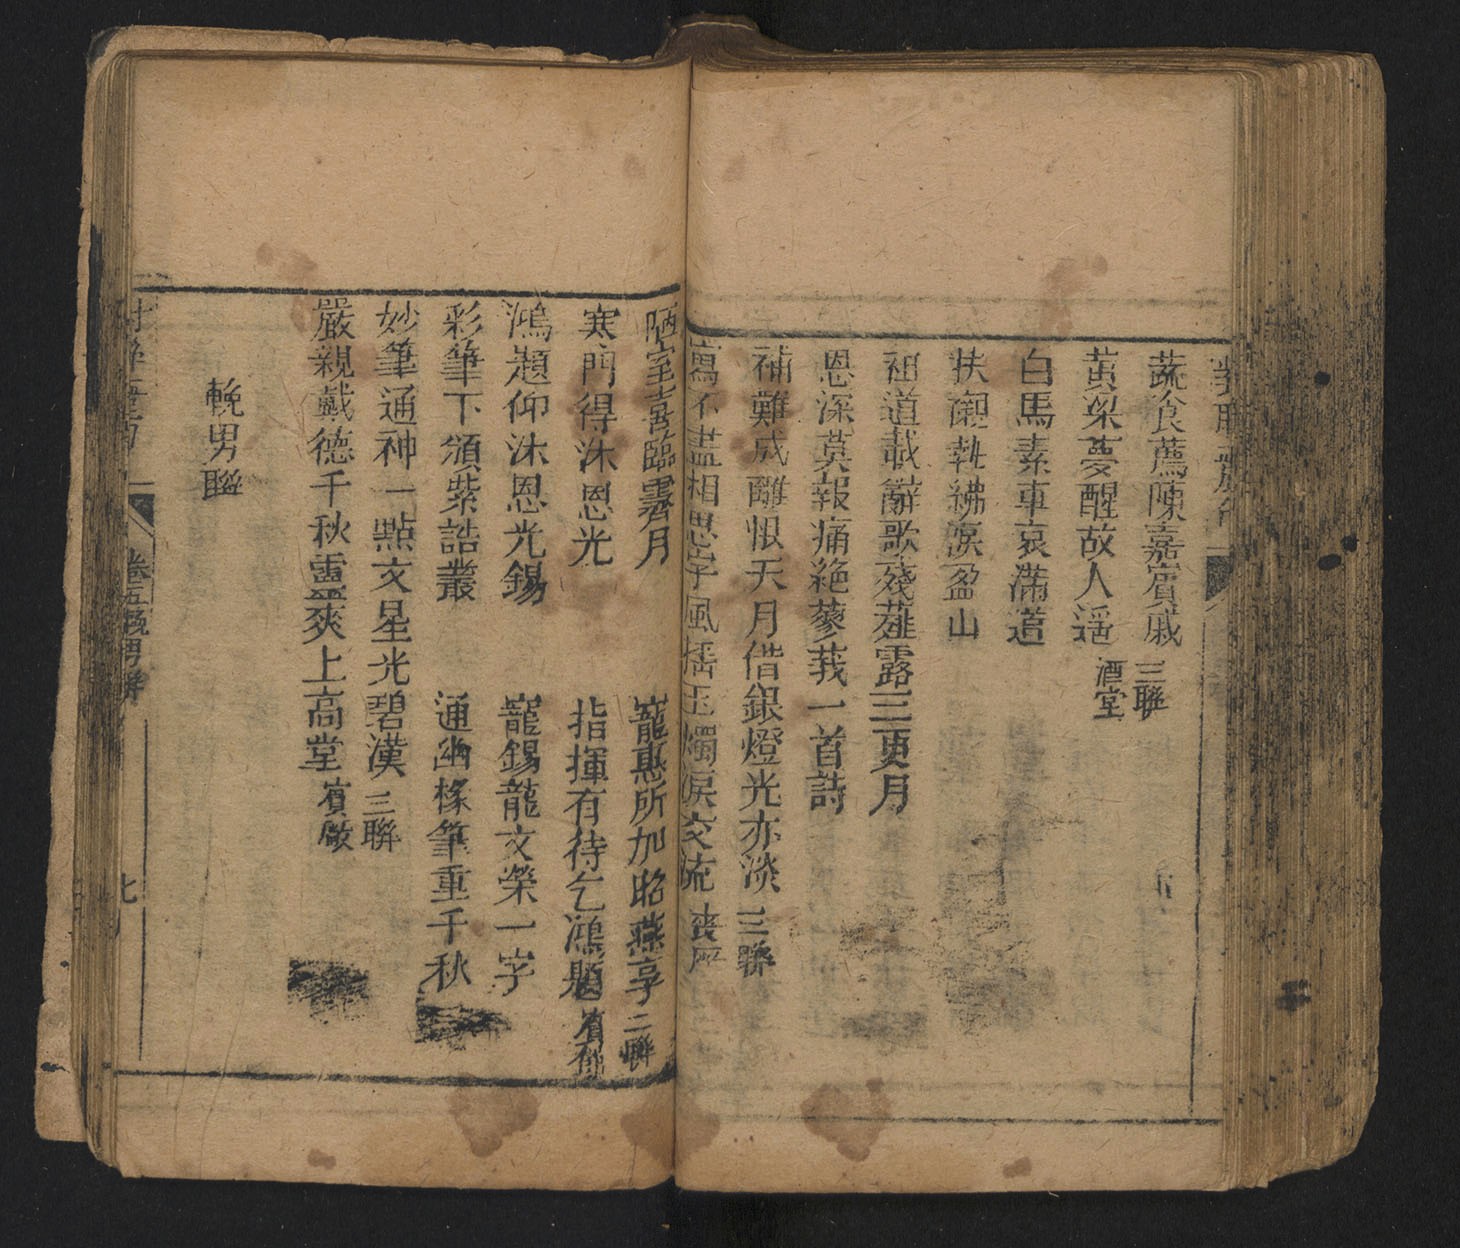 蔬食薦陳嘉賓戚 三聯
黃粱夢醒故人遥 酒堂
白馬素車哀滿道
扶輀執紼淚盈山
祖道載辭歌殘薤露三更月
恩深莫報痛絶蓼莪一首詩
補難成離恨天月借銀燈光亦淡 三聯
寫不盡相思字風搖玉燭淚交流 喪所
陋室喜臨霽月 寵惠所加昭燕享 二聯
寒門得沐恩光 指揮有待乞鴻題
鴻題仰沐恩光錫 寵錫龍文榮一字
彩筆下頒紫誥叢 通幽椽筆重千秋
妙筆通神一點文星光碧漢 三聯
嚴親戴德千秋靈爽上高堂 賓厰
輓男聯
卷五輓男聯
七